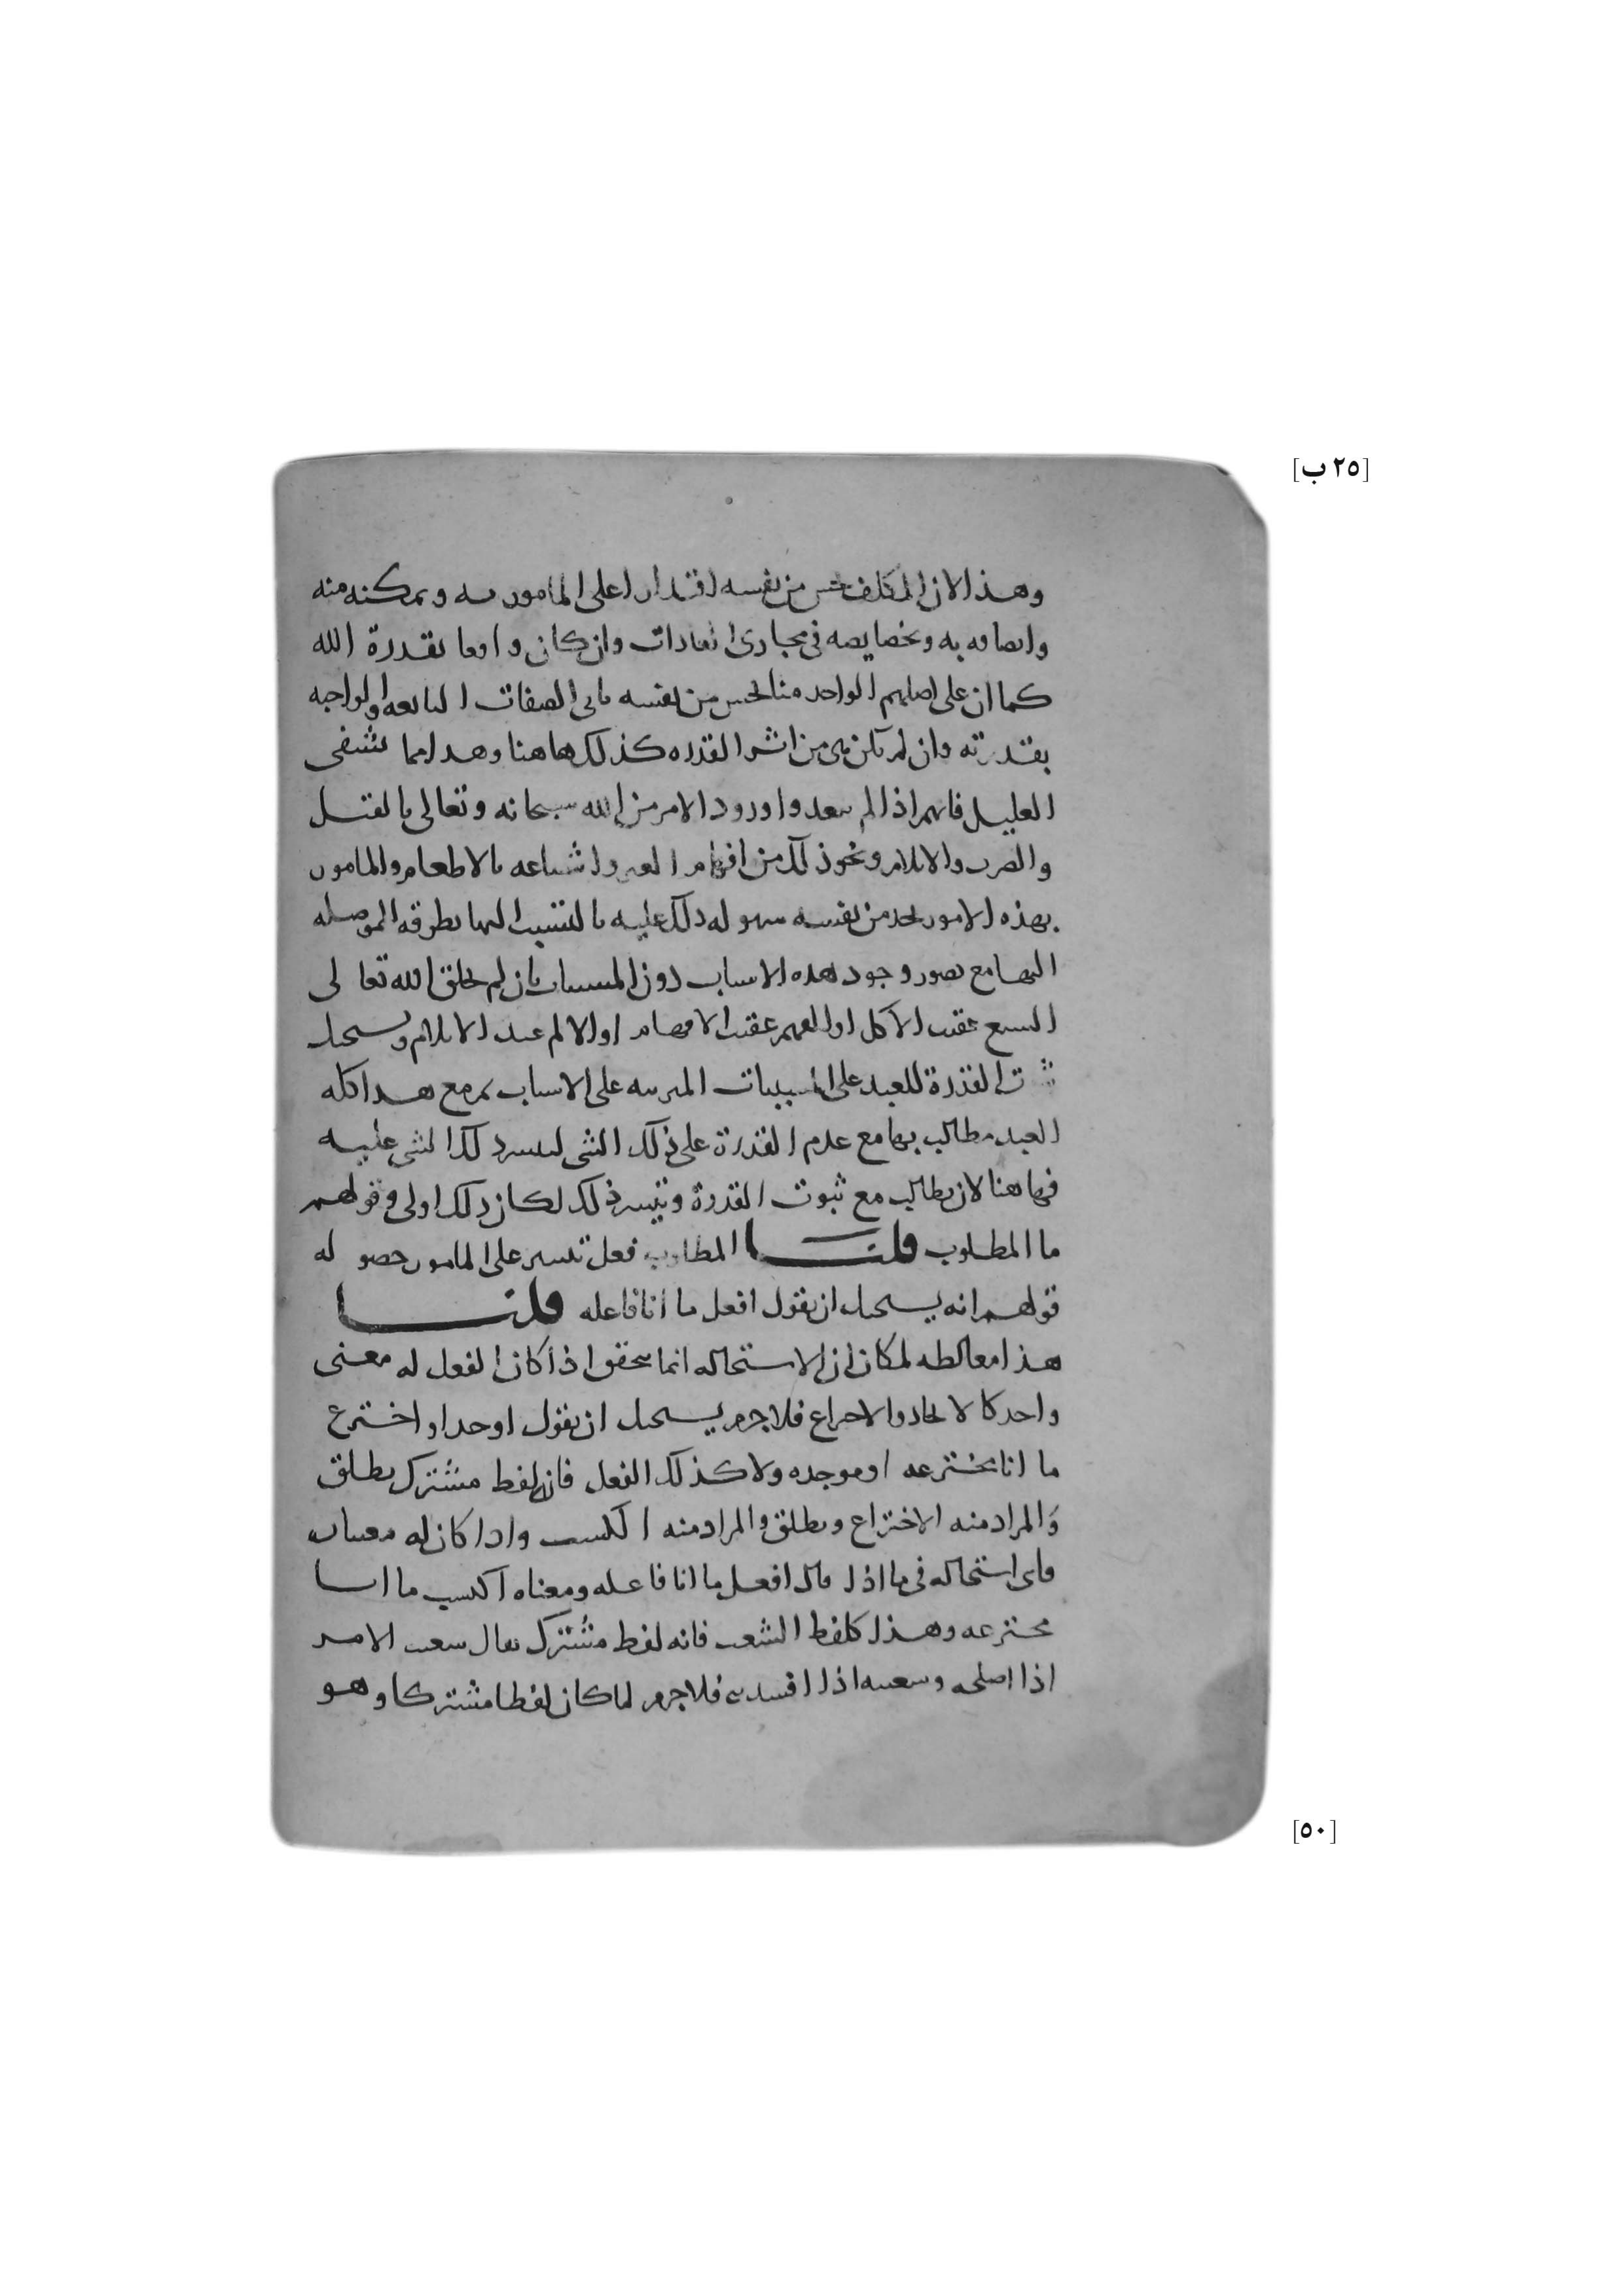 [٢٥ ب]
وهذا لان المكلف يحس من نفسه اقتدارا على المامور به وتمكنه منه
واتصافه به وخصايصه في مجاري العادات وان كان واقعا بقدرة الله
كما ان على اصلهم الواحد منا يحس من نفسه الصفات التابعه الواجبه
بقدرته وان لم تكن هي من اثر القدره كذلك هاهنا وهذا مما يشفى
الغليل فانهم اذا لم يبعدوا ورود الامر من الله سبحانه وتعالى بالقتل
والضرب والايلام ونحو ذلك من افهام الغير واشباعه بالاطعام والمامور
بهذه الامور يجد من نفسه سهوله ذلك عليه بالتسبب اليها بطرقه الموصله
اليها مع تصور وجود هذه الاسباب دون المسببات بان لم يخلق الله تعالى
الشبع عقب الاكل او الفهم عقب الافهام او الالم عند الايلام ويستحيل
القدرة للعبد على المسببات المرتبه على الاسباب ثم مع هذا كله
العبد مطالب بها مع عدم القدرة على ذلك الشي لتيسر ذلك الشي عليه
فهاهنا لان يطالب مع ثبوت القدرة وتيسر ذلك لكان ذلك اولى وقولهم
ما المطلوب قلنا المطلوب فعل تيسر على المامور حصوله
قولهم انه يستحيل ان يقول افعل ما انا فاعله قلنا
هذا مغالطه لمكان ان الاستحاله انما يتحقق اذا كان الفعل له معنى
واحد كالايجاد والاختراع فلا جرم يستحيل ان يقول اوجد او اخترع
ما انا مخترعه او موجده ولا كذلك الفعل فانه لفظ مشترك يطلق
والمراد منه الاختراع ويطلق والمراد منه الكسب واذا كان له معنيان
فاى استحاله في ما اذا قال افعل ما انا فاعله ومعناه اكتسب ما انا
مخترعه وهذا كلفظ الشعب فانه لفظ مشترك يقال شعب الامر
اذا اصلحه وشعبه اذا افسده فلا جرم لما كان لفظا مشتركا وهو
[٥٠]